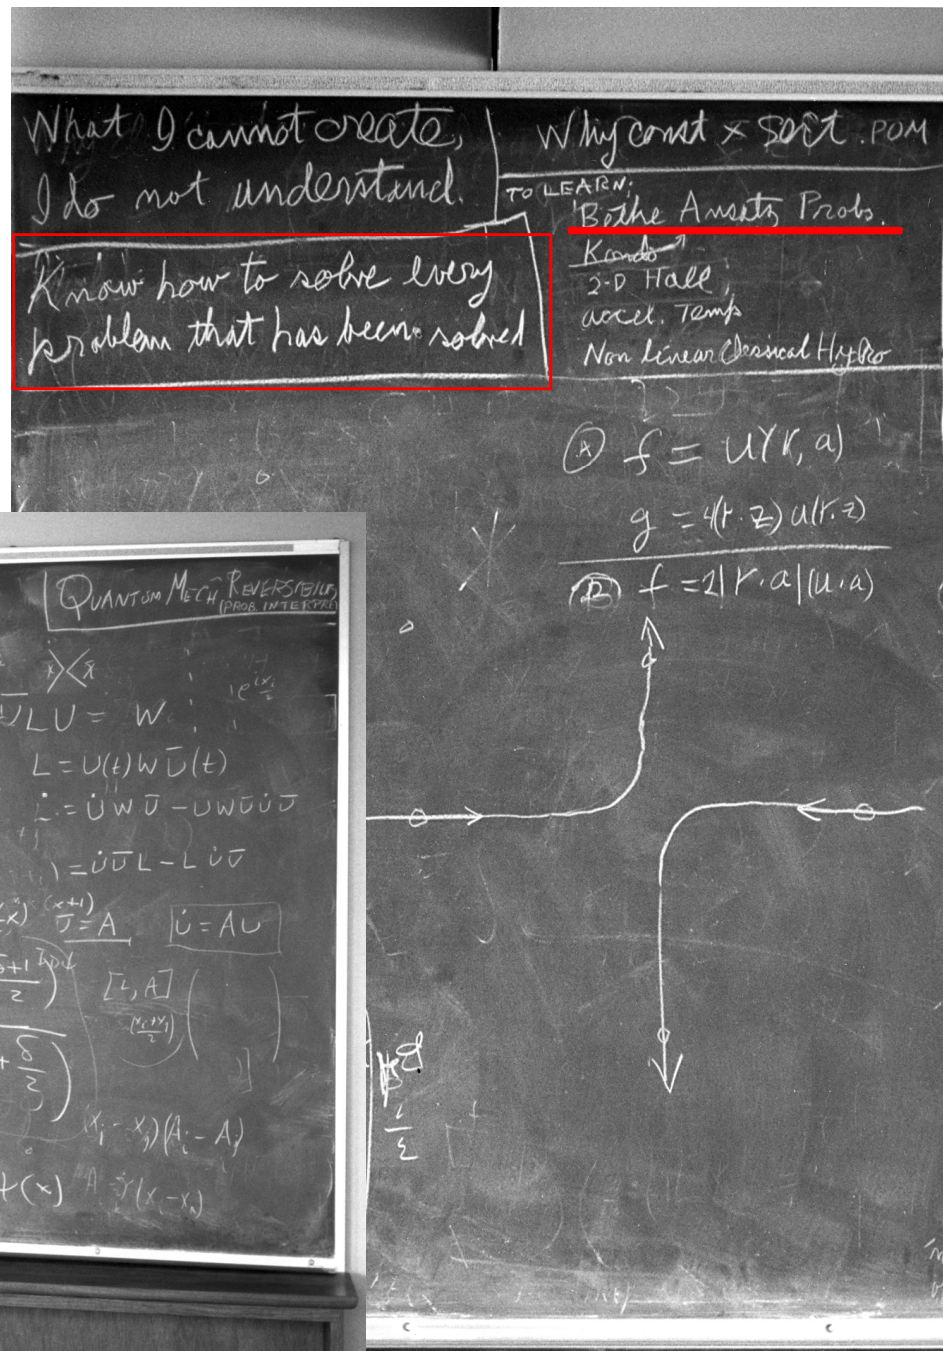 What I cannot create,
I do not understand.
Know how to solve every
problem that has been solved
Why const × sort . POM
TO LEARN:
Bethe Ansatz Probs.
Kondo
2-D Hall
accel. Temp
Non Linear Classical Hydro
(A) f = U(r, a)
g = 4(r·z) u(r·z)
(B) f = 2|r·a|(u·a)
QUANTUM MECH. REVERSIBILI
(PROB. INTERPRE
ŪLU = W
L = U(t) W Ū(t)
L̇ = U̇WŪ − UWŪU̇Ū
) = U̇ŪL − LU̇Ū
(x+1)
Ū = A
U̇ = AU
[L, A]
(xᵢ − xⱼ)(Aᵢ − Aⱼ)